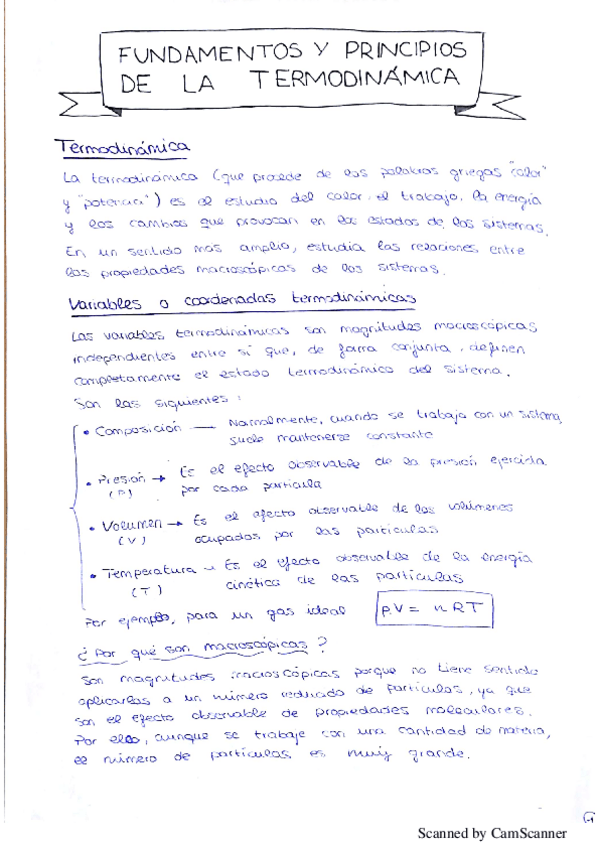 FUNDAMENTOS Y PRINCIPIOS
DE LA TERMODINÁMICA
Termodinámica
La termodinámica (que procede de las palabras griegas "calor"
y "potencia") es el estudio del calor, el trabajo, la energía
y los cambios que provocan en los estados de los sistemas.
En un sentido más amplio, estudia las relaciones entre
las propiedades macroscópicas de los sistemas.
Variables o coordenadas termodinámicas
Las variables termodinámicas son magnitudes macroscópicas
independientes entre sí que, de forma conjunta, definen
completamente el estado termodinámico del sistema.
Son las siguientes:
• Composición — Normalmente, cuando se trabaja con un sistema,
suele mantenerse constante
• Presión → Es el efecto observable de la presión ejercida
(P) por cada partícula
• Volumen → Es el efecto observable de los volúmenes
(V) ocupados por las partículas
• Temperatura → Es el efecto observable de la energía
(T) cinética de las partículas
Por ejemplo, para un gas ideal P.V = nRT
¿Por qué son macroscópicas?
Son magnitudes macroscópicas porque no tiene sentido
aplicarlas a un número reducido de partículas, ya que
son el efecto observable de propiedades moleculares.
Por ello, aunque se trabaje con una cantidad de materia,
el número de partículas es muy grande.
Scanned by CamScanner